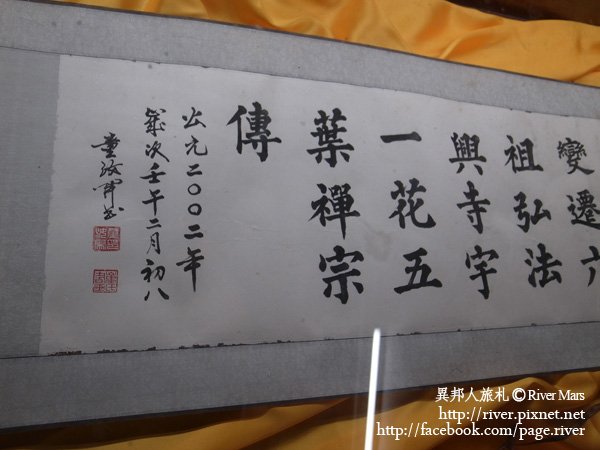 變遷六
祖弘法
興寺宇
一花五
葉禪宗
傳
公元二〇〇二年
歲次壬午二月初八
異邦人旅札 © River Mars
http://river.pixnet.net
http://facebook.com/page.river